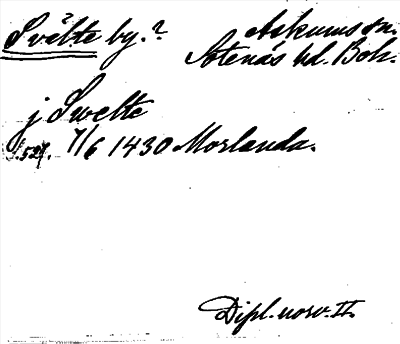 Svälte by.? Askums sn.
Stenäs hd. Boh.
j Swelte
s. 527. 7/6 1430 Morlanda.
Dipl. norv. II.